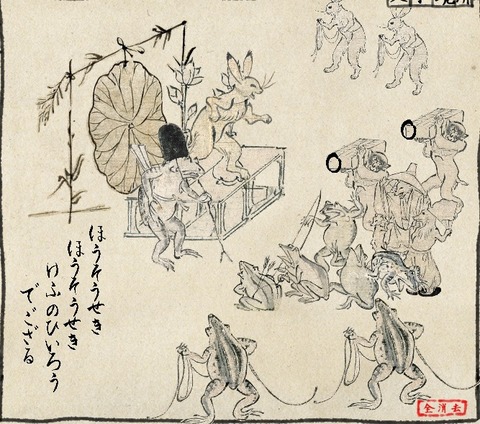 ほうそうせき
ほうそうせき
けふのひいろう
でござる
全消去